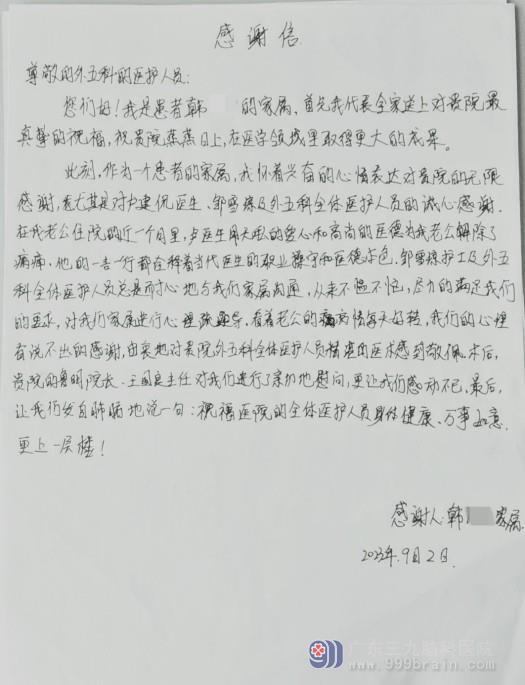 感谢信
尊敬的外五科的医护人员:
您们好!我是患者韩 的家属,首先我代表全家送上对贵院最
真挚的祝福,祝贵院蒸蒸日上,在医学领域里取得更大的成果。
此刻,作为一个患者的家属,我怀着兴奋的心情表达对贵院的无限
感谢,尤其是对卢建侃医生、邹雪缘及外五科全体医护人员的诚心感谢.
在我老公住院的近一个月里,卢医生用火热的爱心和高尚的医德为我老公解除了
病痛,他的一言一行都在释着当代医生的职业操守和医德本色,邹雪缘护士及外五
科全体医护人员总是耐心地与我们家属沟通,从来不愠不怒,尽力的满足我们
的要求,对我们家属进行心理疏导,看着老公的病情每天好转,我们的心里
有说不出的感谢,由衷地对贵院外五科全体医护人员精湛的医术感到敬佩术后,
贵院的鲁明院长、王国良主任对我们进行了亲切地慰问,更让我们感动不已,最后,
让我们发自肺腑地说一句:祝福医院的全体医护人员身体健康、万事如意.
更上一层楼!
感谢人:韩 家属.
9月2日.
广东三九脑科医院
www.999brain.com